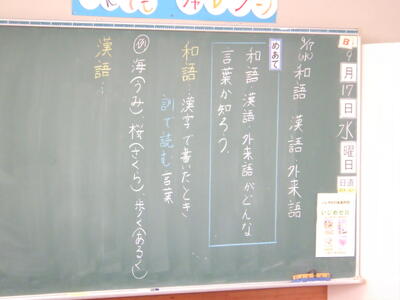 何でもチャレンジ
9月17日水曜日
日直
9/17(水)和語 漢語 外来語
めあて
和語、漢語、外来語がどんな
言葉か知ろう。
和語…漢字で書いたとき
訓で読む言葉
例 海(うみ)、桜(さくら)、歩く(あるく)
漢語…